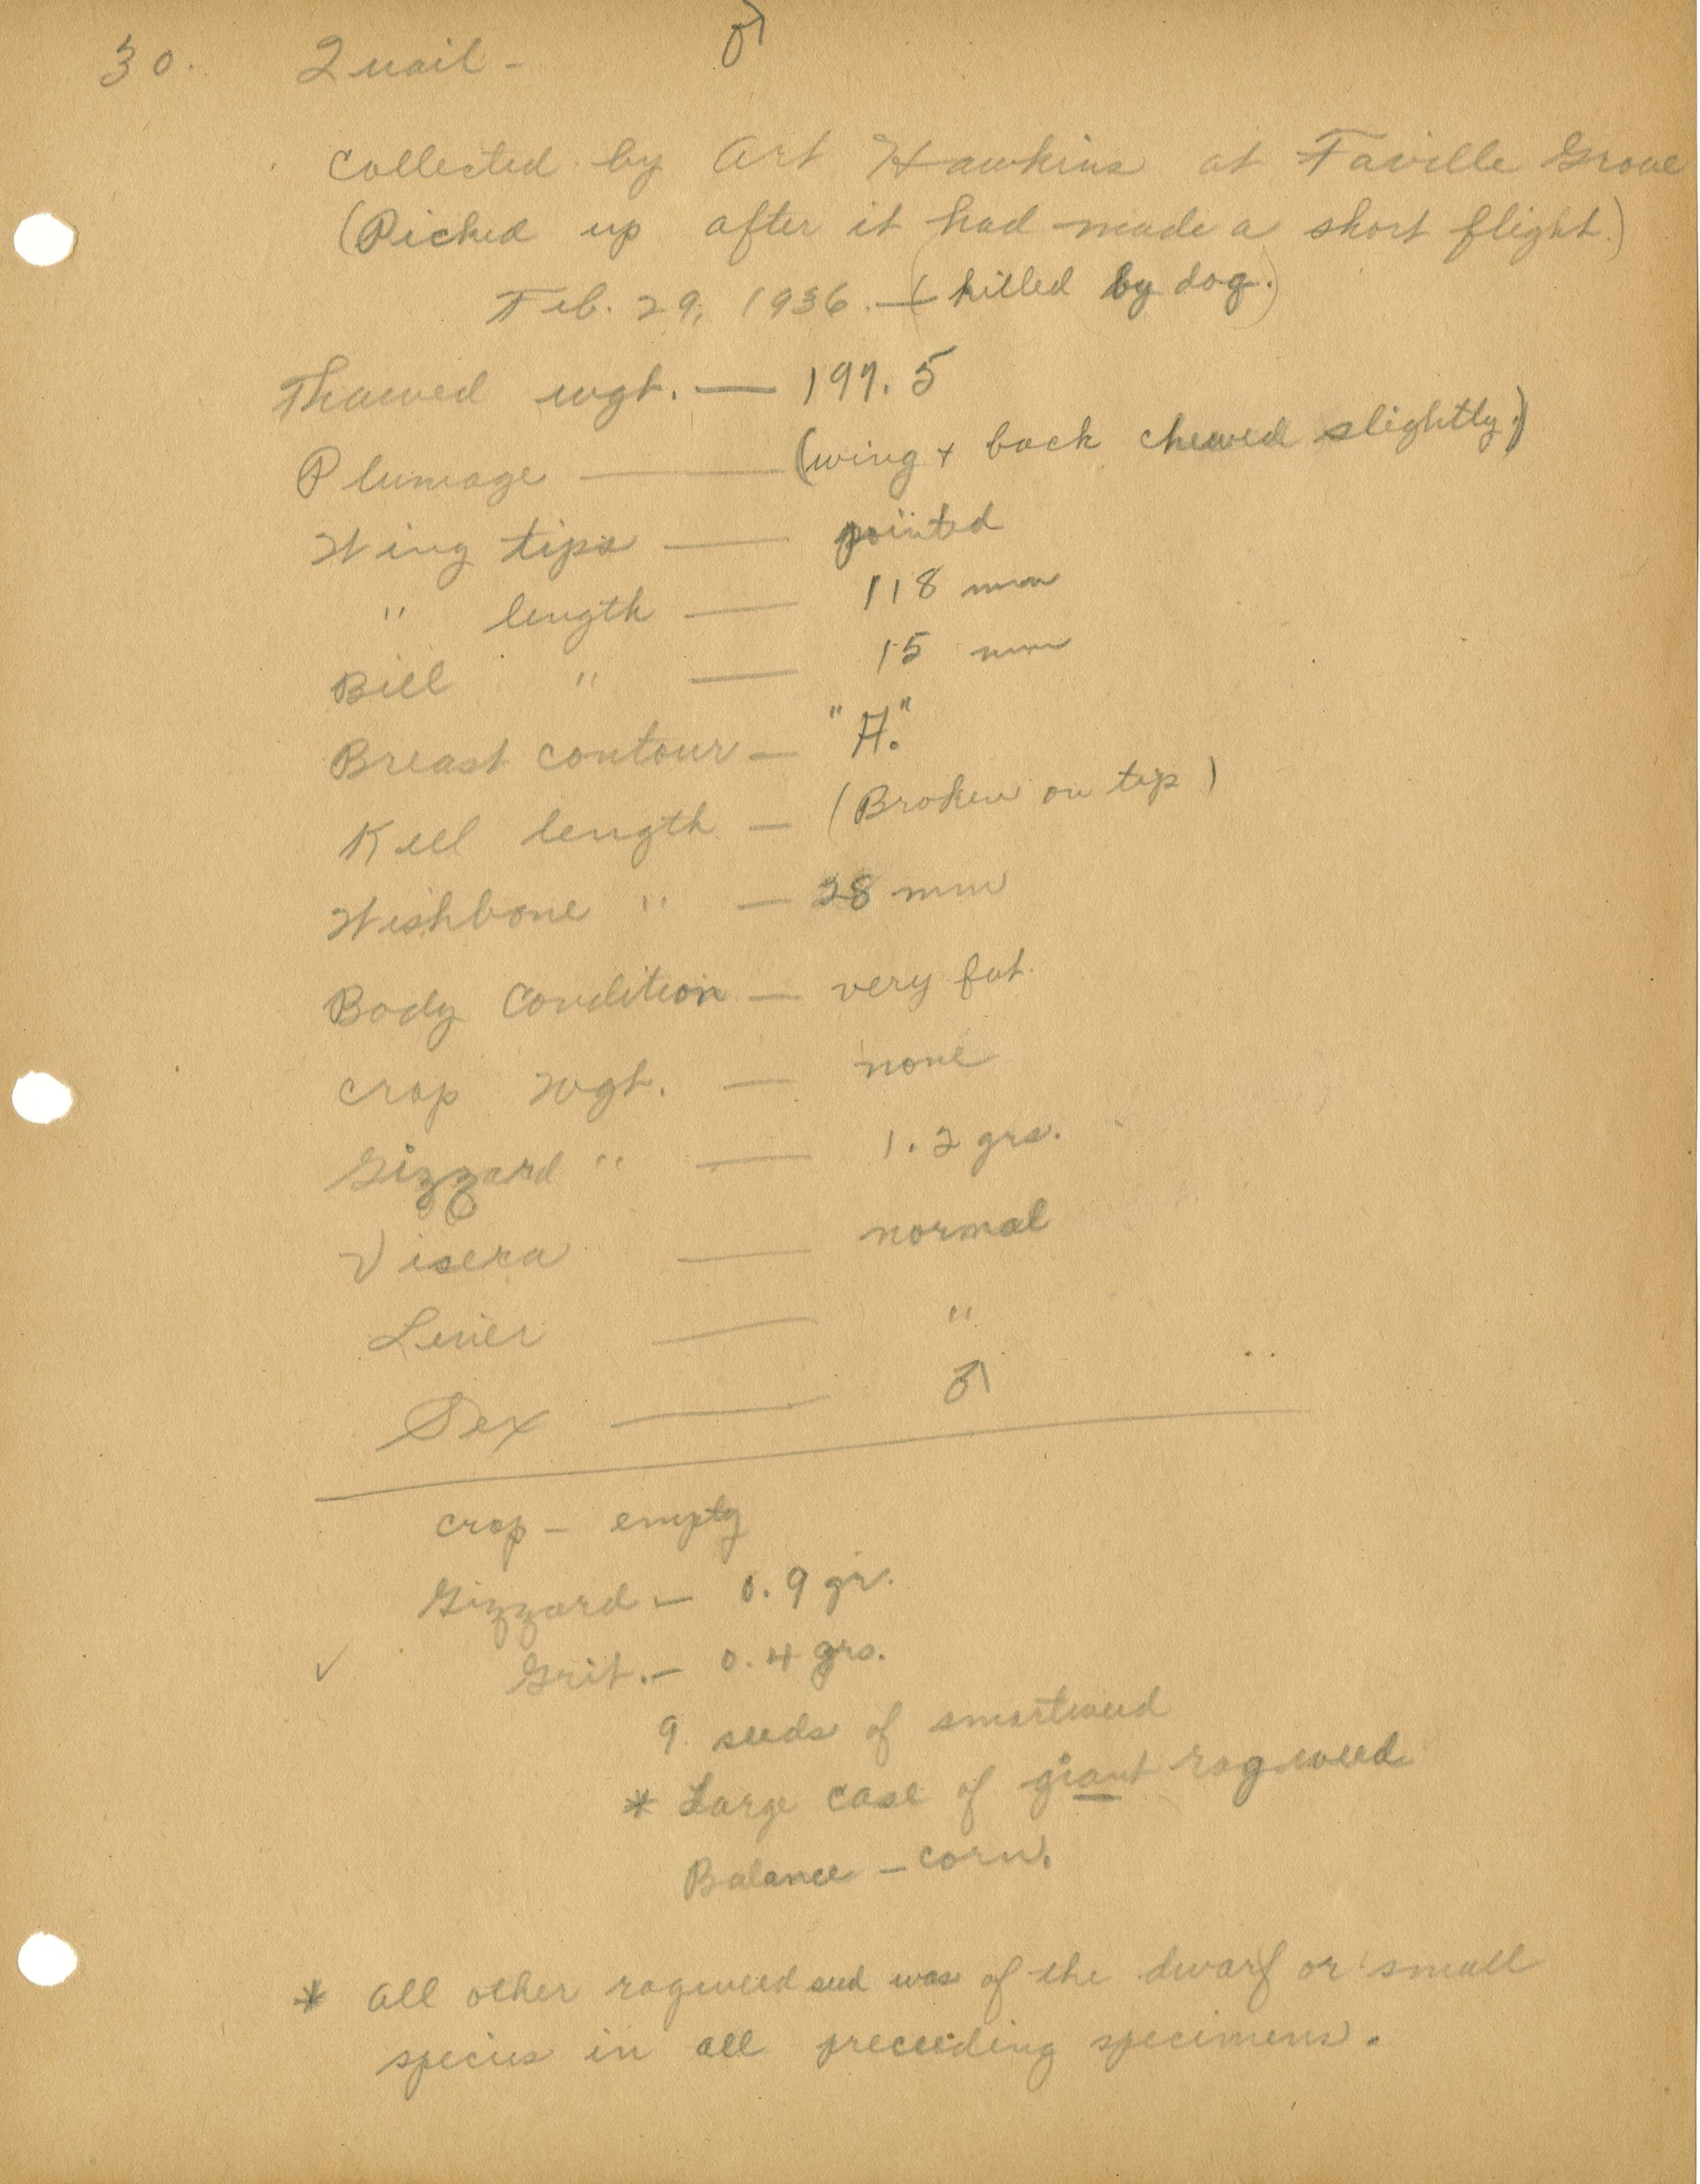 30. Quail - ♂
Collected by Art Hawkins at Faville Grove
(Picked up after it had made a short flight.)
Feb. 29, 1936. — (killed by dog.)
Thawed wgt. — 197.5
Plumage — (wing + back chewed slightly.)
Wing tips — pointed
" length — 118 mm
Bill " — 15 mm
Breast contour — "A."
Keel length — (Broken on tip)
Wishbone " — 28 mm
Body Condition — very fat.
Crop Wgt. — none
Gizzard " — 1.2 grs.
Visera — normal
Liver — "
Sex — ♂
Crop - empty
Gizzard - 0.9 gr.
✓ Grit. - 0.4 grs.
9 seeds of smartweed
* Large case of giant ragweed
Balance - corn.
* All other ragweed seed was of the dwarf or small
species in all preceeding specimens.